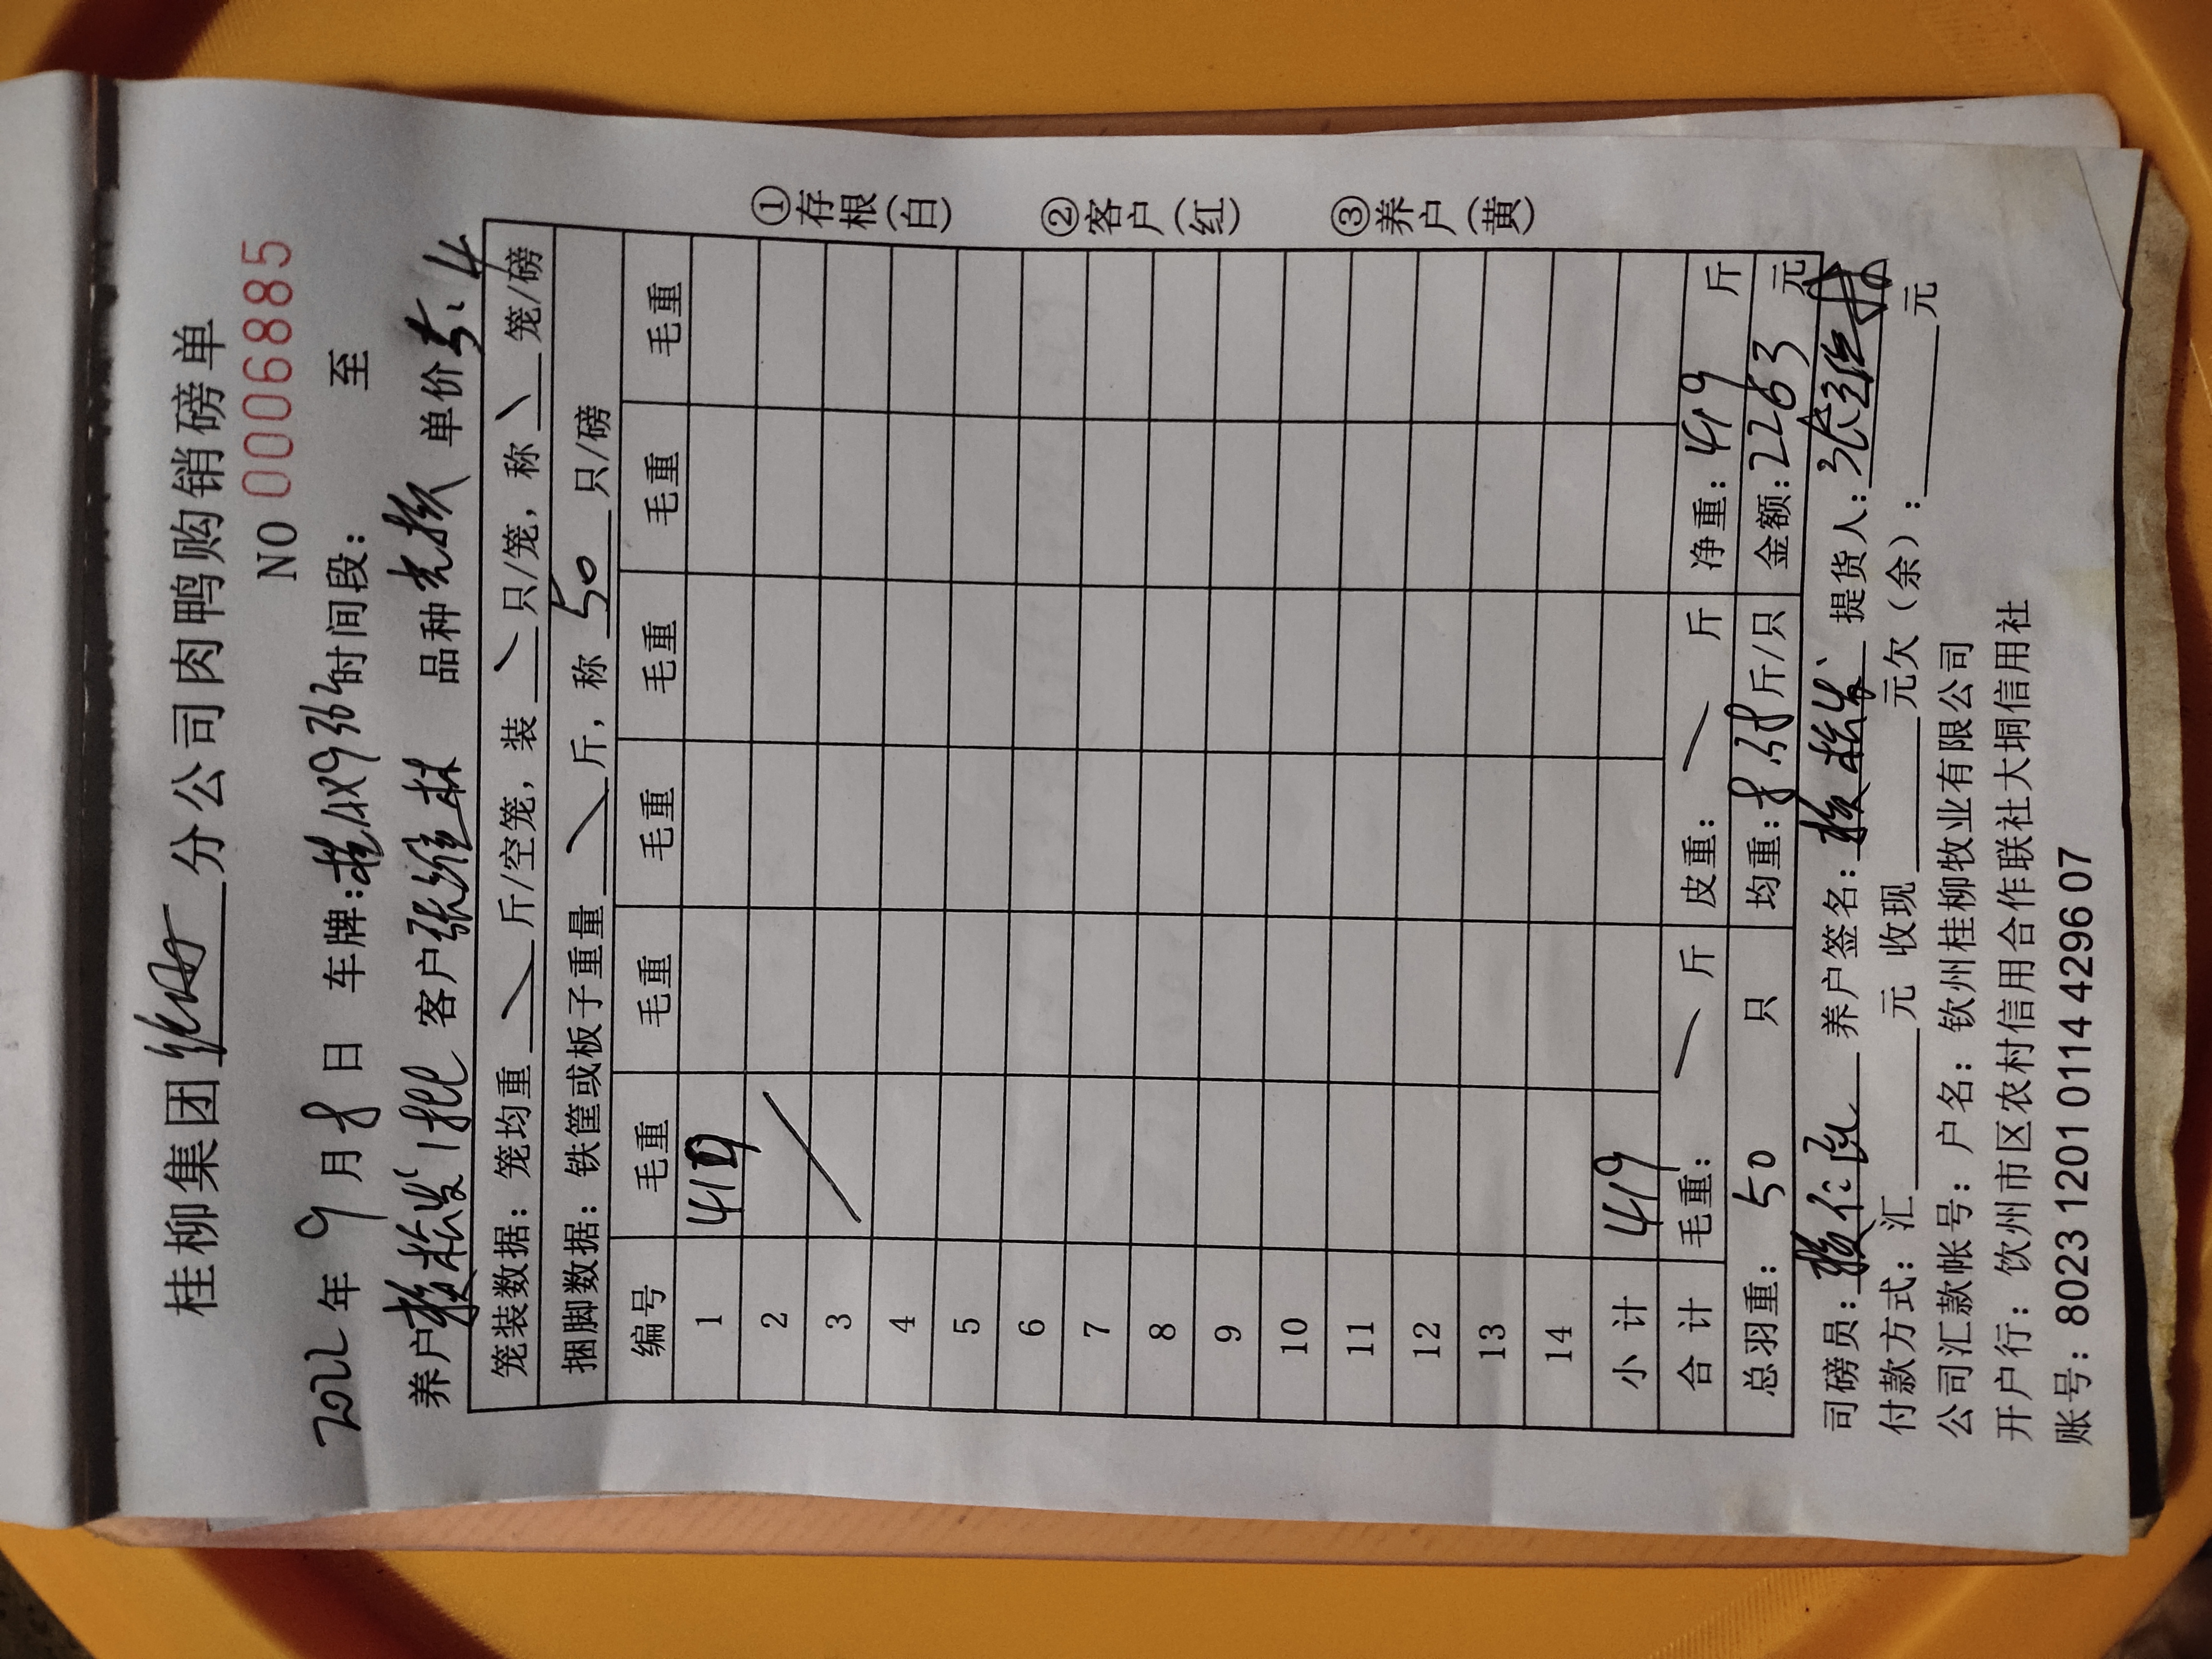 桂柳集团 分公司肉鸭购销磅单
NO 0006885
2022年9月8日 车牌:桂 时间段: 至
养户 1批 客户张维林 品种 单价5.4
笼装数据: 笼均重 \ 斤/空笼, 装 \ 只/笼, 称 \ 笼/磅
捆脚数据: 铁筐或板子重量 \ 斤, 称 50 只/磅
编号 毛重 毛重 毛重 毛重 毛重 毛重
1 419
2
3
4
5
6
7
8
9
10
11
12
13
14
小 计 419
合 计 毛重: \ 斤 皮重: \ 斤 净重: 419 斤
总羽重: 50 只 均重: 8.38 斤/只 金额: 2263 元
司磅员: 养户签名: 提货人: 张维林
付款方式: 汇 元 收现 元欠(余): 元
公司汇款帐号: 户名: 钦州桂柳牧业有限公司
开户行: 钦州市区农村信用合作联社大垌信用社
账号: 8023 1201 0114 4296 07
①存根(白)
②客户(红)
③养户(黄)